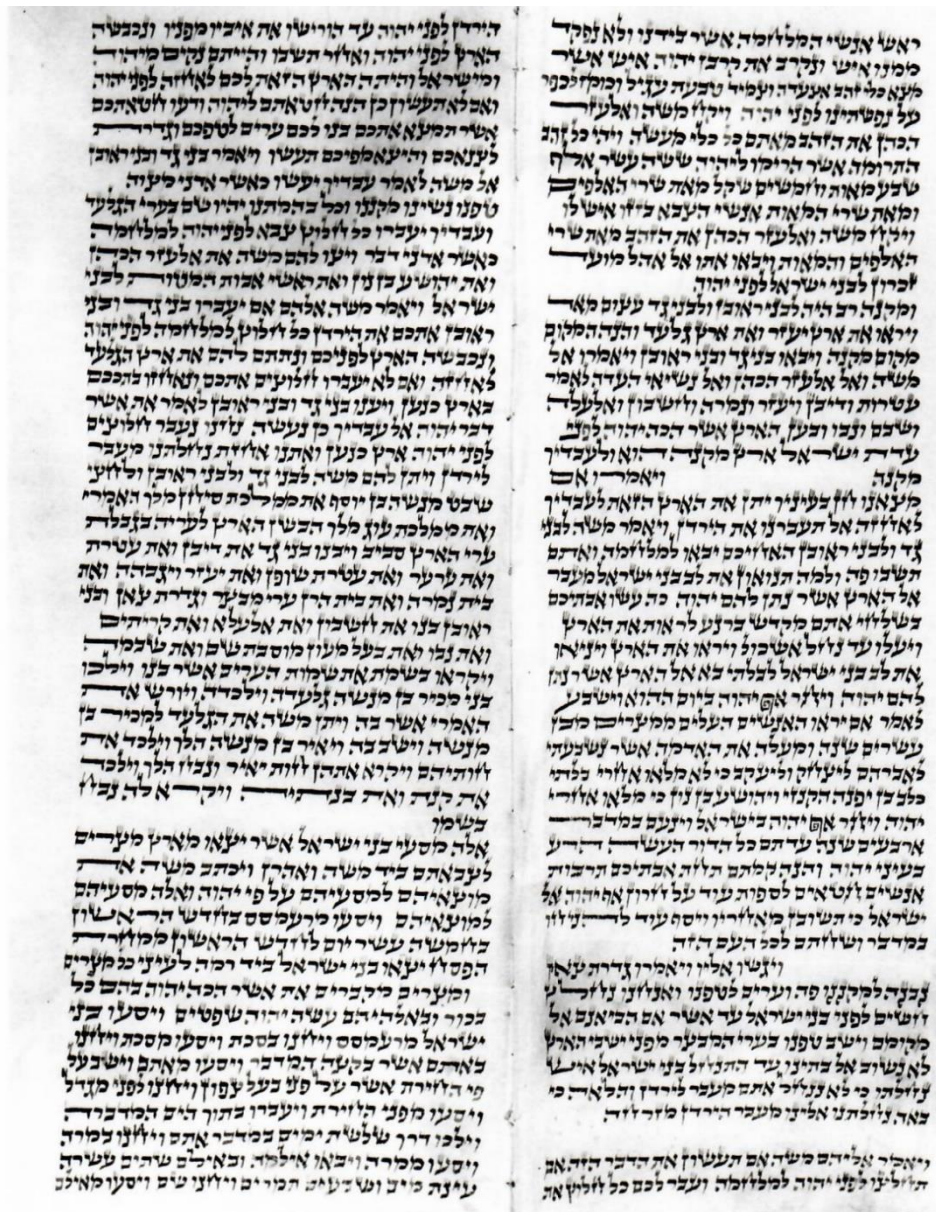 ראש אנשי המלחמה אשר בידנו ולא נפקד
ממנו איש ונקרב את קרבן יהוה איש אשר
מצא כלי זהב אצעדה וצמיד טבעת עגיל וכומז לכפר
על נפשתינו לפני יהוה ויקח משה ואלעזר
הכהן את הזהב מאתם כל כלי מעשה ויהי כל זהב
התרומה אשר הרימו ליהוה ששה עשר אלף
שבע מאות וחמשים שקל מאת שרי האלפים
ומאת שרי המאות אנשי הצבא בזזו איש לו
ויקח משה ואלעזר הכהן את הזהב מאת שרי
האלפים והמאות ויבאו אתו אל אהל מועד
זכרון לבני ישראל לפני יהוה
ומקנה רב היה לבני ראובן ולבני גד עצום מאד
ויראו את ארץ יעזר ואת ארץ גלעד והנה המקום
מקום מקנה ויבאו בני גד ובני ראובן ויאמרו אל
משה ואל אלעזר הכהן ואל נשיאי העדה לאמר
עטרות ודיבן ויעזר ונמרה וחשבון ואלעלה
ושבם ונבו ובען הארץ אשר הכה יהוה לפני
עדת ישראל ארץ מקנה הוא ולעבדיך
מקנה ויאמרו אם
מצאנו חן בעיניך יתן את הארץ הזאת לעבדיך
לאחזה אל תעברנו את הירדן ויאמר משה לבני
גד ולבני ראובן האחיכם יבאו למלחמה ואתם
תשבו פה ולמה תנואון את לב בני ישראל מעבר
אל הארץ אשר נתן להם יהוה כה עשו אבתיכם
בשלחי אתם מקדש ברנע לראות את הארץ
ויעלו עד נחל אשכול ויראו את הארץ ויניאו
את לב בני ישראל לבלתי בא אל הארץ אשר נתן
להם יהוה ויחר אף יהוה ביום ההוא וישבע
לאמר אם יראו האנשים העלים ממצרים מבן
עשרים שנה ומעלה את האדמה אשר נשבעתי
לאברהם ליצחק וליעקב כי לא מלאו אחרי בלתי
כלב בן יפנה הקנזי ויהושע בן נון כי מלאו אחרי
יהוה ויחר אף יהוה בישראל וינעם במדבר
ארבעים שנה עד תם כל הדור העשה הרע
בעיני יהוה והנה קמתם תחת אבתיכם תרבות
אנשים חטאים לספות עוד על חרון אף יהוה אל
ישראל כי תשובן מאחריו ויסף עוד להניחו
במדבר ושחתם לכל העם הזה
ויגשו אליו ויאמרו גדרת צאן
נבנה למקננו פה וערים לטפנו ואנחנו נחלץ
חשים לפני בני ישראל עד אשר אם הביאנם אל
מקומם וישב טפנו בערי המבצר מפני ישבי הארץ
לא נשוב אל בתינו עד התנחל בני ישראל איש
נחלתו כי לא ננחל אתם מעבר לירדן והלאה כי
באה נחלתנו אלינו מעבר הירדן מזרחה
ויאמר אליהם משה אם תעשון את הדבר הזה אם
תחלצו לפני יהוה למלחמה ועבר לכם כל חלוץ את
הירדן לפני יהוה עד הורישו את איביו מפניו ונכבשה
הארץ לפני יהוה ואחר תשבו והייתם נקים מיהוה
ומישראל והיתה הארץ הזאת לכם לאחזה לפני יהוה
ואם לא תעשון כן הנה חטאתם ליהוה ודעו חטאתכם
אשר תמצא אתכם בנו לכם ערים לטפכם וגדרת
לצנאכם והיצא מפיכם תעשו ויאמר בני גד ובני ראובן
אל משה לאמר עבדיך יעשו כאשר אדני מצוה
טפנו נשינו מקננו וכל בהמתנו יהיו שם בערי הגלעד
ועבדיך יעברו כל חלוץ צבא לפני יהוה למלחמה
כאשר אדני דבר ויצו להם משה את אלעזר הכהן
ואת יהושע בן נון ואת ראשי אבות המטות לבני
ישראל ויאמר משה אלהם אם יעברו בני גד ובני
ראובן אתכם את הירדן כל חלוץ למלחמה לפני יהוה
ונכבשה הארץ לפניכם ונתתם להם את ארץ הגלעד
לאחזה ואם לא יעברו חלוצים אתכם ונאחזו בתככם
בארץ כנען ויענו בני גד ובני ראובן לאמר את אשר
דבר יהוה אל עבדיך כן נעשה נחנו נעבר חלוצים
לפני יהוה ארץ כנען ואתנו אחזת נחלתנו מעבר
לירדן ויתן להם משה לבני גד ולבני ראובן ולחצי
שבט מנשה בן יוסף את ממלכת סיחן מלך האמרי
ואת ממלכת עוג מלך הבשן הארץ לעריה בגבלת
ערי הארץ סביב ויבנו בני גד את דיבן ואת עטרת
ואת ערער ואת עטרת שופן ואת יעזר ויגבהה ואת
בית נמרה ואת בית הרן ערי מבצר וגדרת צאן ובני
ראובן בנו את חשבון ואת אלעלא ואת קריתים
ואת נבו ואת בעל מעון מוסבת שם ואת שבמה
ויקראו בשמת את שמות הערים אשר בנו וילכו
בני מכיר בן מנשה גלעדה וילכדה ויורש את
האמרי אשר בה ויתן משה את הגלעד למכיר בן
מנשה וישב בה ויאיר בן מנשה הלך וילכד את
חותיהם ויקרא אתהן חות יאיר ונבח הלך וילכד
את קנת ואת בנתיה ויקרא לה נבח
בשמו
אלה מסעי בני ישראל אשר יצאו מארץ מצרים
לצבאתם ביד משה ואהרן ויכתב משה את
מוצאיהם למסעיהם על פי יהוה ואלה מסעיהם
למוצאיהם ויסעו מרעמסס בחדש הראשון
בחמשה עשר יום לחדש הראשון ממחרת
הפסח יצאו בני ישראל ביד רמה לעיני כל מצרים
ומצרים מקברים את אשר הכה יהוה בהם כל
בכור ובאלהיהם עשה יהוה שפטים ויסעו בני
ישראל מרעמסס ויחנו בסכת ויסעו מסכת ויחנו
באתם אשר בקצה המדבר ויסעו מאתם וישב על
פי החירת אשר על פני בעל צפון ויחנו לפני מגדל
ויסעו מפני החירת ויעברו בתוך הים המדברה
וילכו דרך שלשת ימים במדבר אתם ויחנו במרה
ויסעו ממרה ויבאו אילמה ובאילם שתים עשרה
עינת מים ושבעים תמרים ויחנו שם ויסעו מאילם